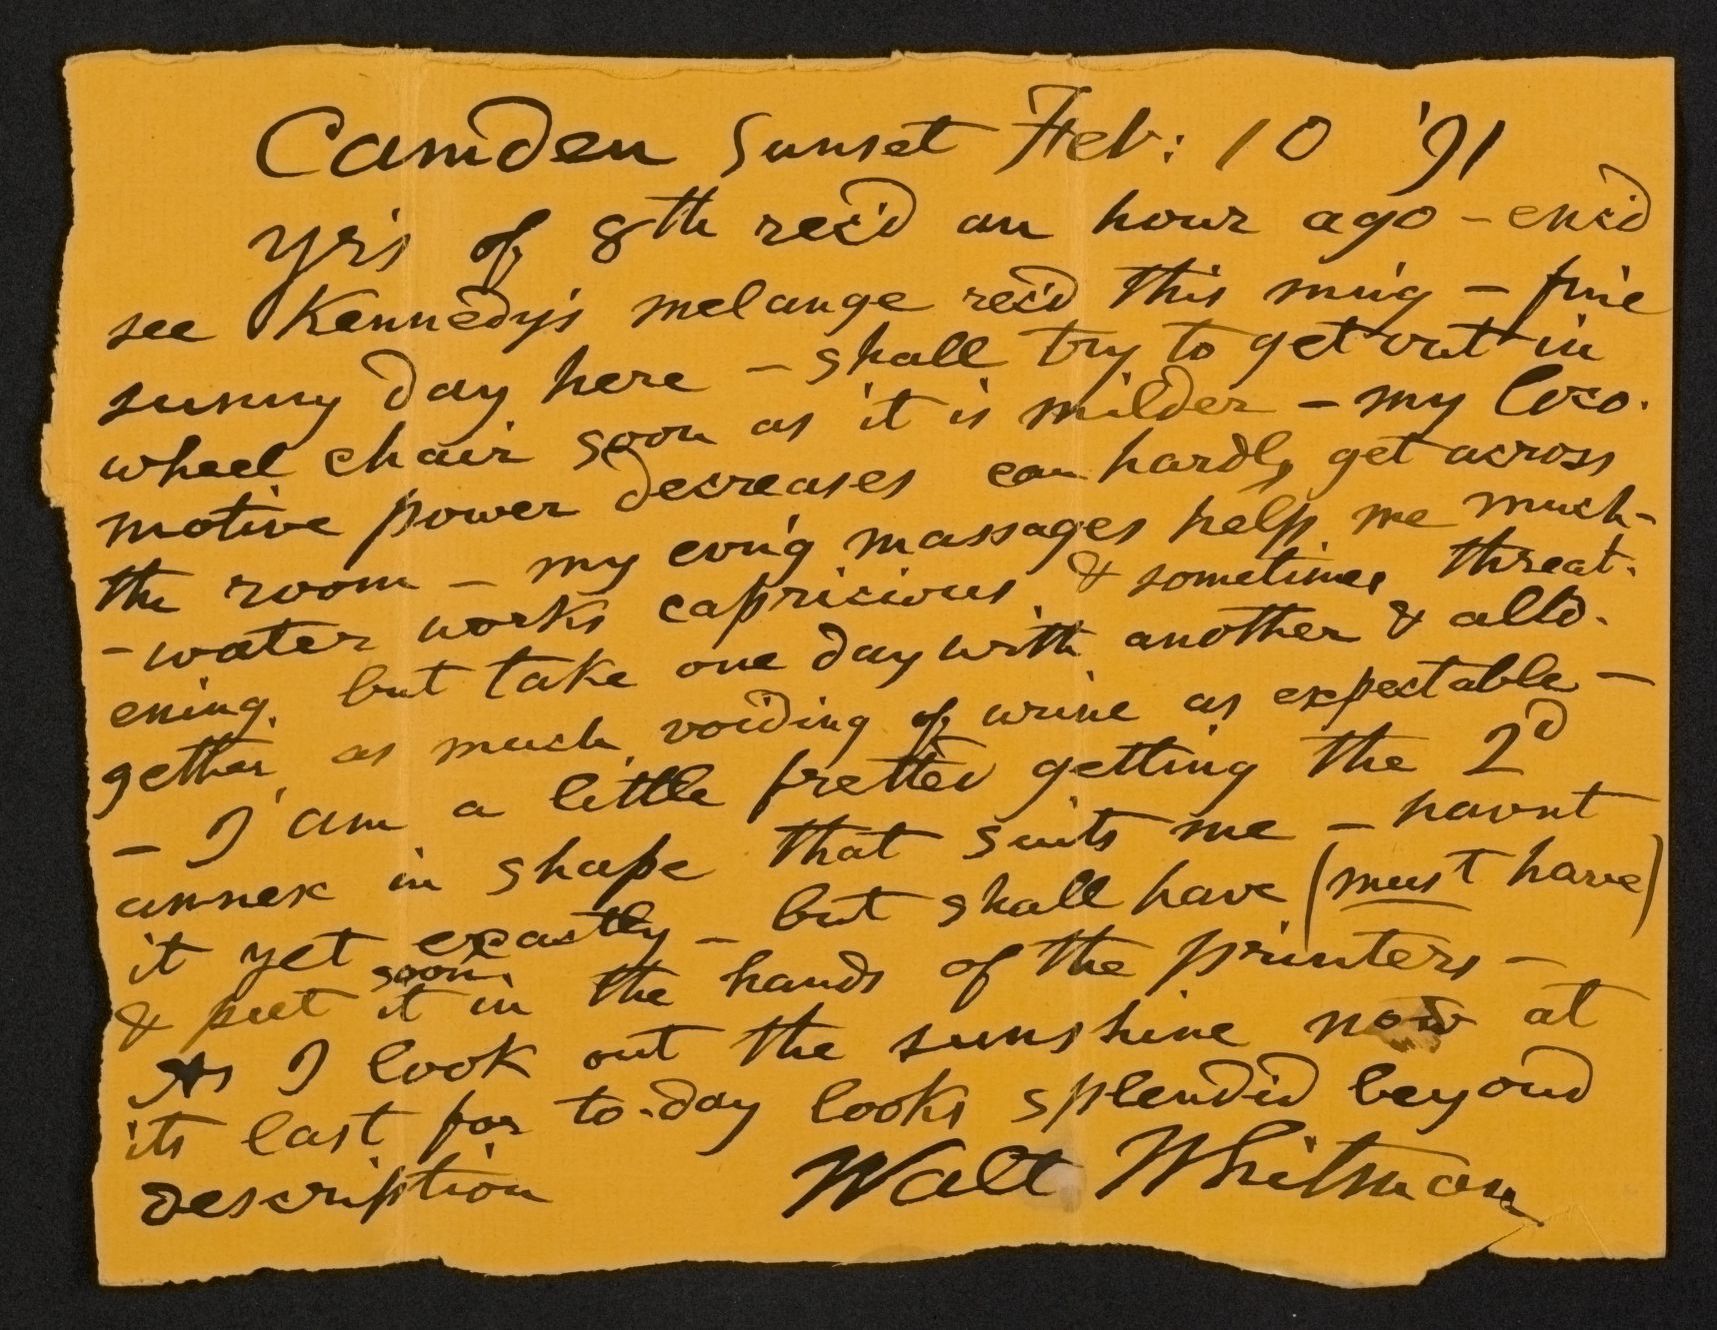 Camden Sunset Feb: 10 '91
Yr's of 8th rec'd an hour ago – enc'd
see Kennedy's melange rec'd this mn'g – fine
sunny day here – shall try to get out in
wheel chair soon as it is milder – my loco-
motive power decreases can hardly get across
the room – my evn'g massages help me much –
– water works capricious & sometimes threat-
ening, but take one day with another & alto-
gether, as much voiding of urine as expectable –
– I am a little fretted getting the 2d
annex in shape that suits me – havnt
it yet exactly – but shall have (must have)
& put soon it in the hands of the printers –
As I look out the sunshine now at
its last for to-day looks splendid beyond
description Walt Whitman